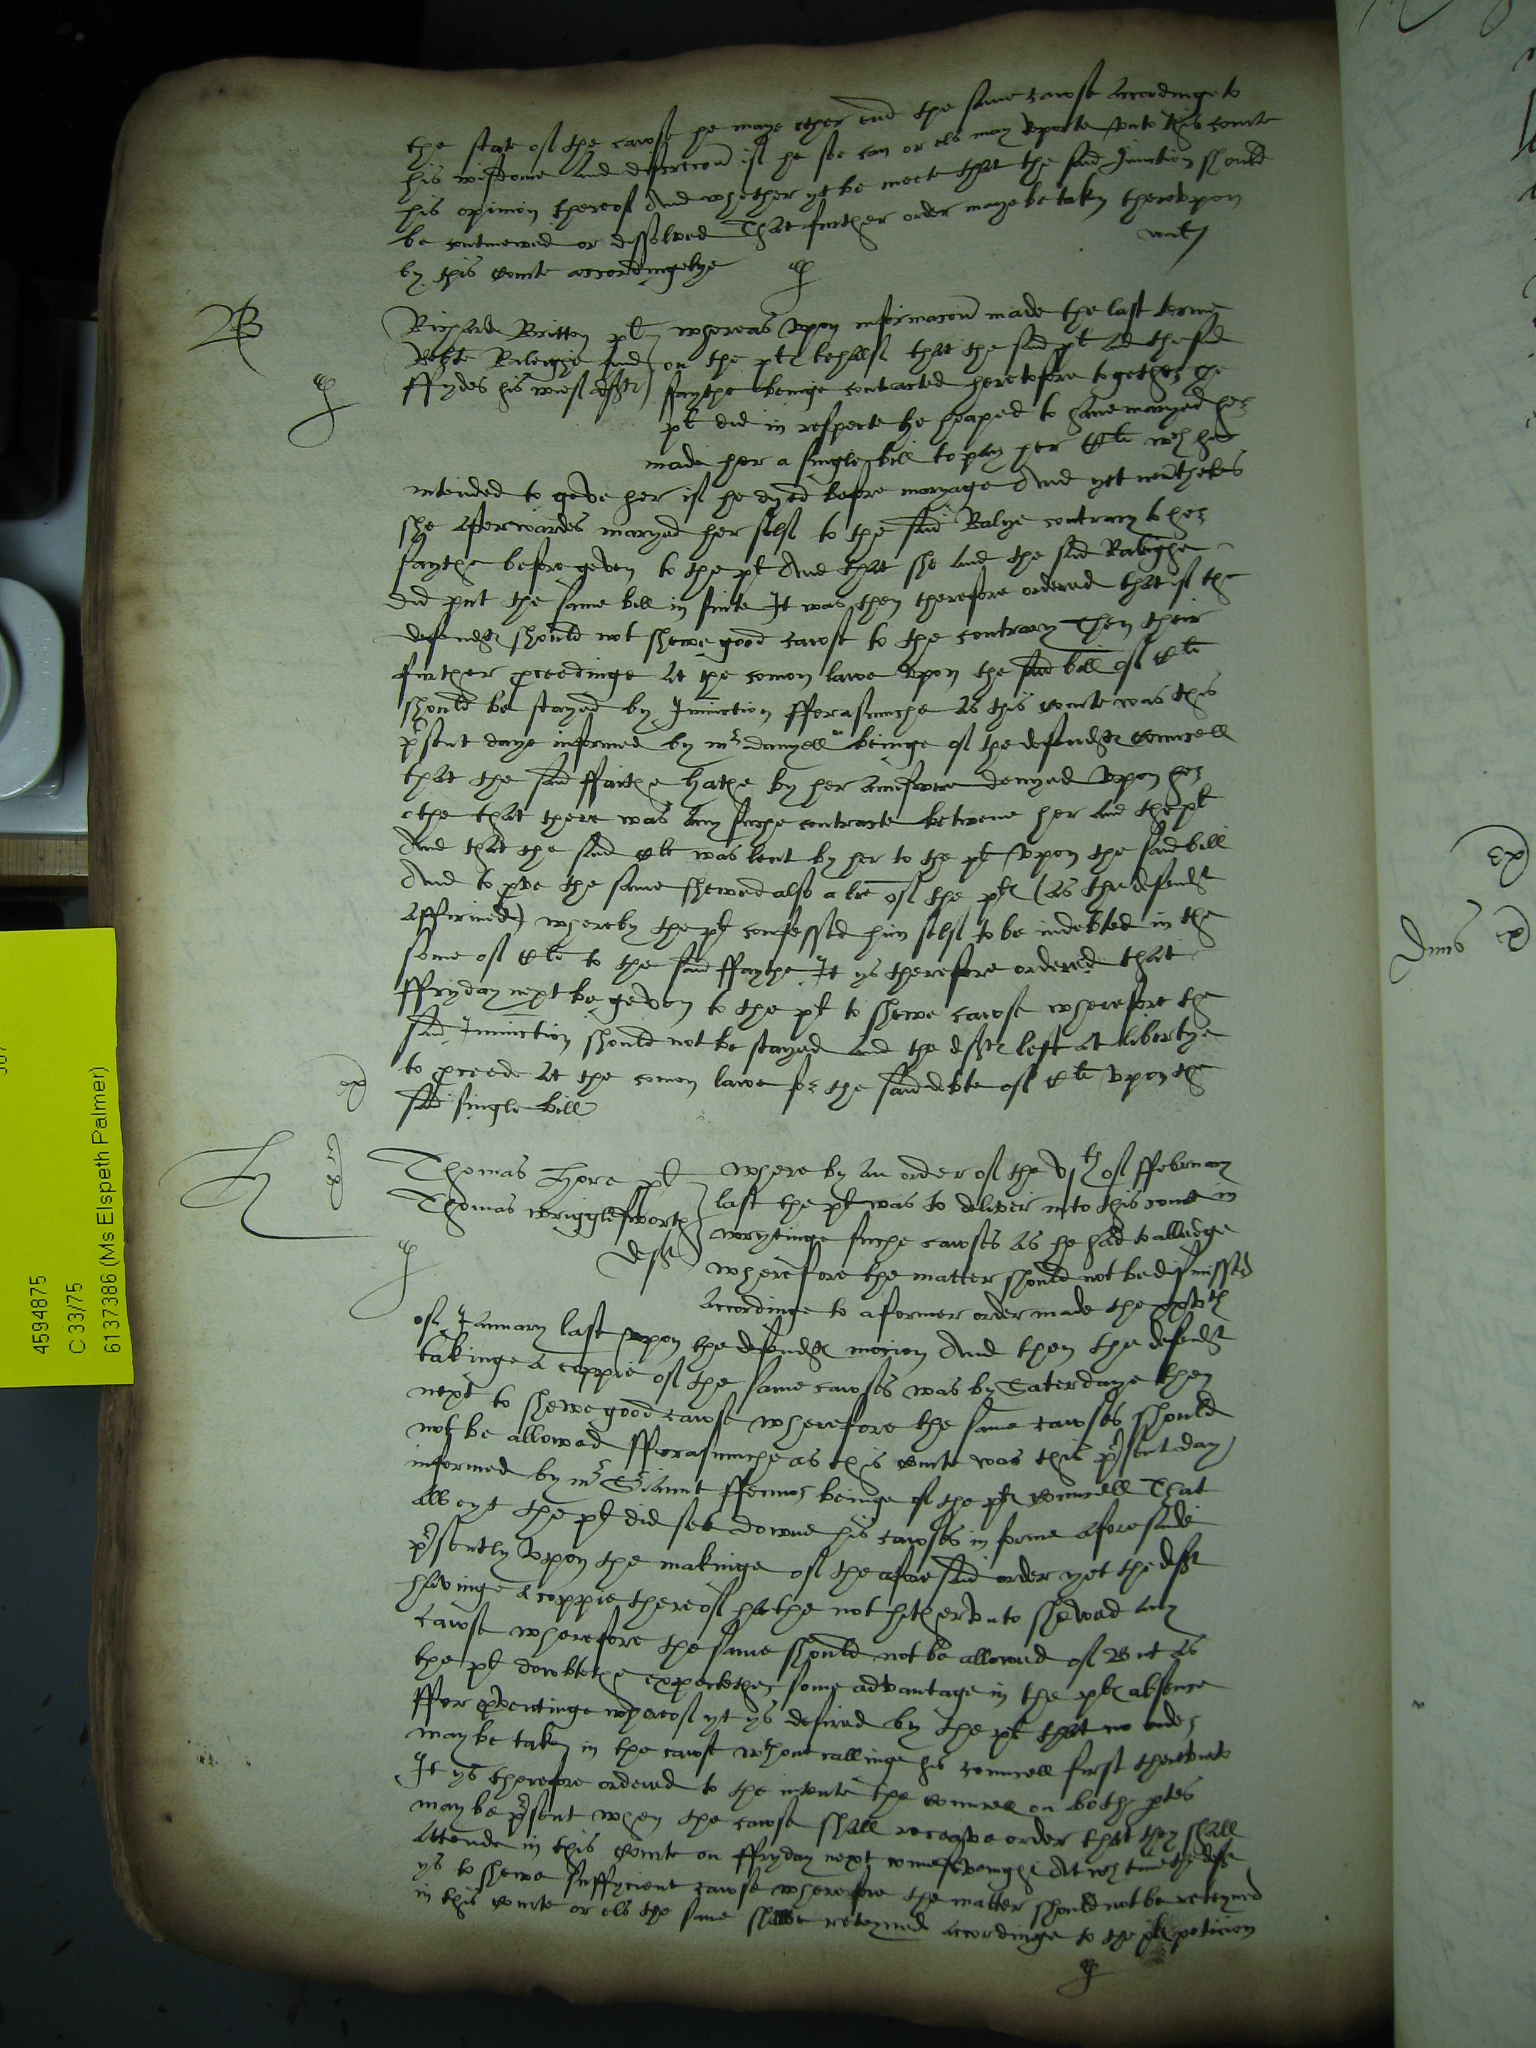 the state of the cawse he maye ether end the same cawse accordinge to
his wisdome and discrecion if he soe can or els may reporte vnto this courte
his opinion thereof And whether yt be meete that the said Iniunction should
be contynewed or dissolved That further order maye be taken therevpon
by this courte accordingelye
Richard Britten pl whereas vpon informacion made the last terme
Robte Raleighe and on the pltes behalf that the said pl and the said
ffydes his wief defts faythe beinge contracted heretofore together the
pl did in respecte he hoaped to have maryed her
made her a single bill to pay her wch he
intended to geve her if he dyed before maryage And yet nevertheles
she afterwardes maryed her self to the said Ralye contrary to her
faythe before geven to the pl And that she and the said Raleighe
did put the same bill in suite It was then therefore ordered that if the
defendts should not shewe good cawse to the contrary Then their
further proceedinge at the comon lawe vpon the said bill of
should be stayed by Iniunction fforasmuche as this courte was this
psent daye informed by mr Danyell beinge of the defendts councell
that the said ffaithe hathe by her aunswere denyed vpon her
othe that there was any suche contracte betwene her and the pl
And that the said was lent by her to the pl vpon the said bill
And to prove the same shewed also a lre of the pltes (as the defendt
affirmed) whereby the pl confessed him self to be indebted in the
some of to the said ffaythe It ys therefore ordered that
ffryday next be geven to the pl to shewe cawse wherefore the
said Iniunction should not be stayed and the defts left at libertye
to proceede at the comon lawe for the said debte of vpon the
said single bill
Thomas Hore pl where by an order of the vjth of ffebruary
Thomas Wrigglesworth last the pl was to deliver into this courte in
deft wrytinge suche cawses as he had to alledge
wherefore the matter should not be dismissed
accordinge to a former order made the
of January last vpon the defendts mocion And then the defendt
takinge a coppie of the same cawses was by Saterdaye then
next to shewe good cawse wherefore the same cawses should
not be allowed fforasmuche as this courte was this psent day
informed by mr Seriaunt ffennor beinge of the pltes councell That
albeyt the pl did set downe his cawses in forme aforesaide
psently vpon the makinge of the aforesaid order yet the deft
havinge a coppie thereof hathe not hithervnto shewed any
cawse wherefore the same should not be allowed of But as
the pl doubteth expectethe some advantage in the pltes absence
ffor preventinge whereof yt ys desired by the pl that no order
may be taken in the cawse wthout callinge his councell first therevnto
It ys therefore ordered to the intente the councell on bothe ptes
may be psent when the cawse shall receyve order that they shall
attende in this courte on ffryday next At wch tyme the deft
ys to shewe suffycient cawse wherefore the matter should not be reteyned
in this courte or els the same shalbe reteyned accordinge to the pltes peticion
4594875
C 33/75
6137386 (Ms Elspeth Palmer)